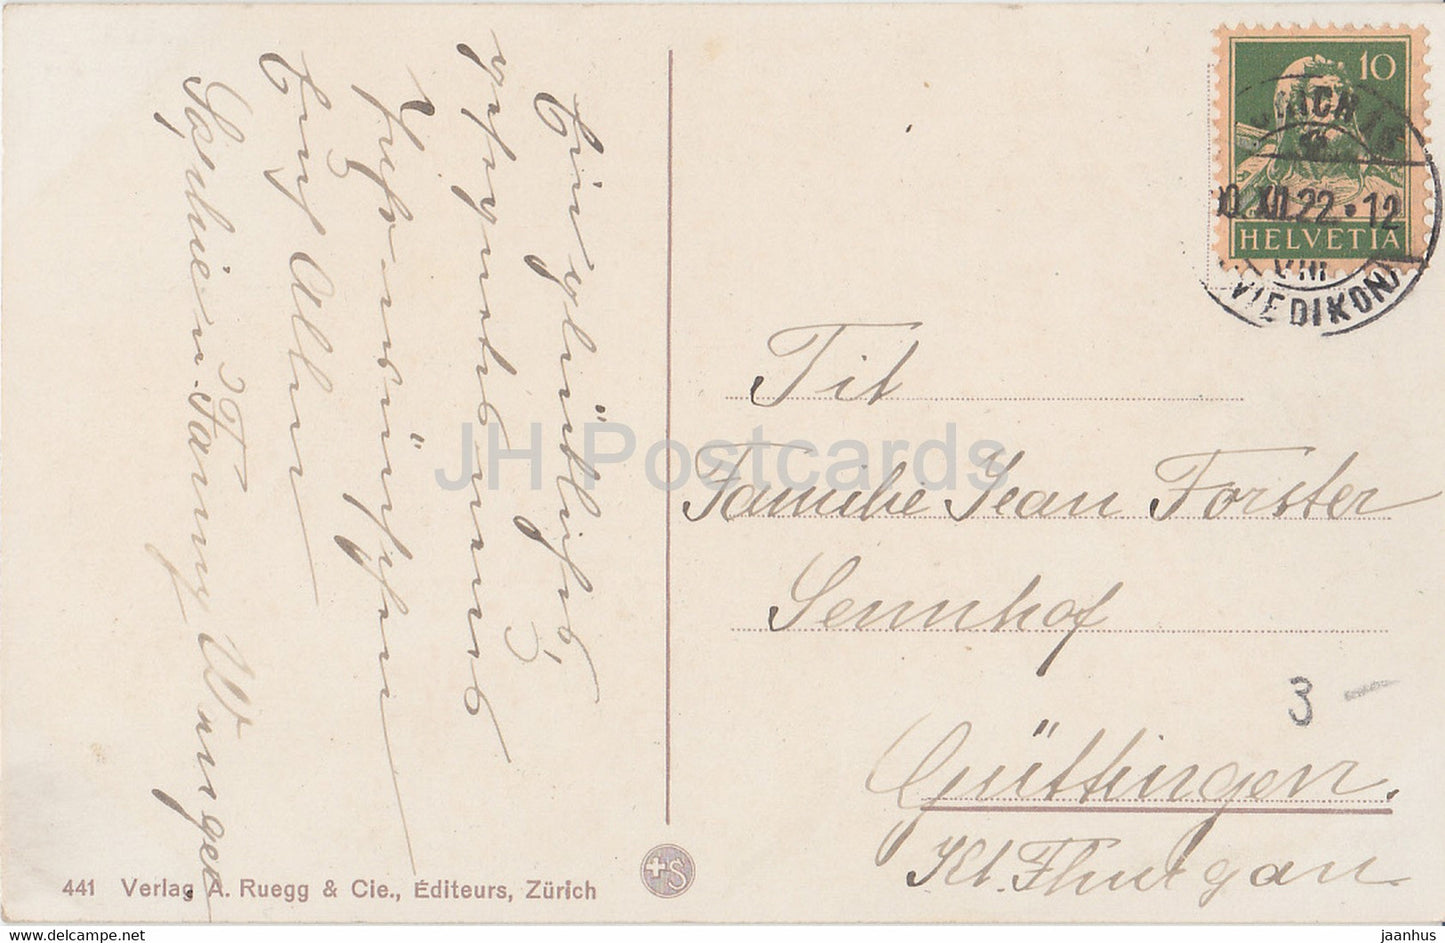 Ein glückliches,
gesegnetes neues
Jahr wünschen
Euch Allen
Sophie u. Fanny Wanger
Tit
Familie Jean Forster
Sennhof
Güttingen.
Kt. Thurgau.
3 —
10
HELVETIA
XII.22.-12
VIII
(WIEDIKON)
441 Verlag A. Ruegg & Cie., Éditeurs, Zürich
+S
JH Postcards
www.delcampe.net
jaanhus